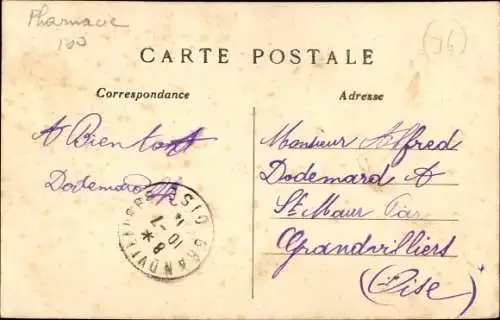 Pharmacie
100
(76)
CARTE POSTALE
Correspondance
Adresse
A Bientot
Dodemard
Monsieur Alfred
Dodemard A
St Maur Par
Grandvilliers
(Oise)
GRANDVILLIERS OISE
8 *
10 - 7
14